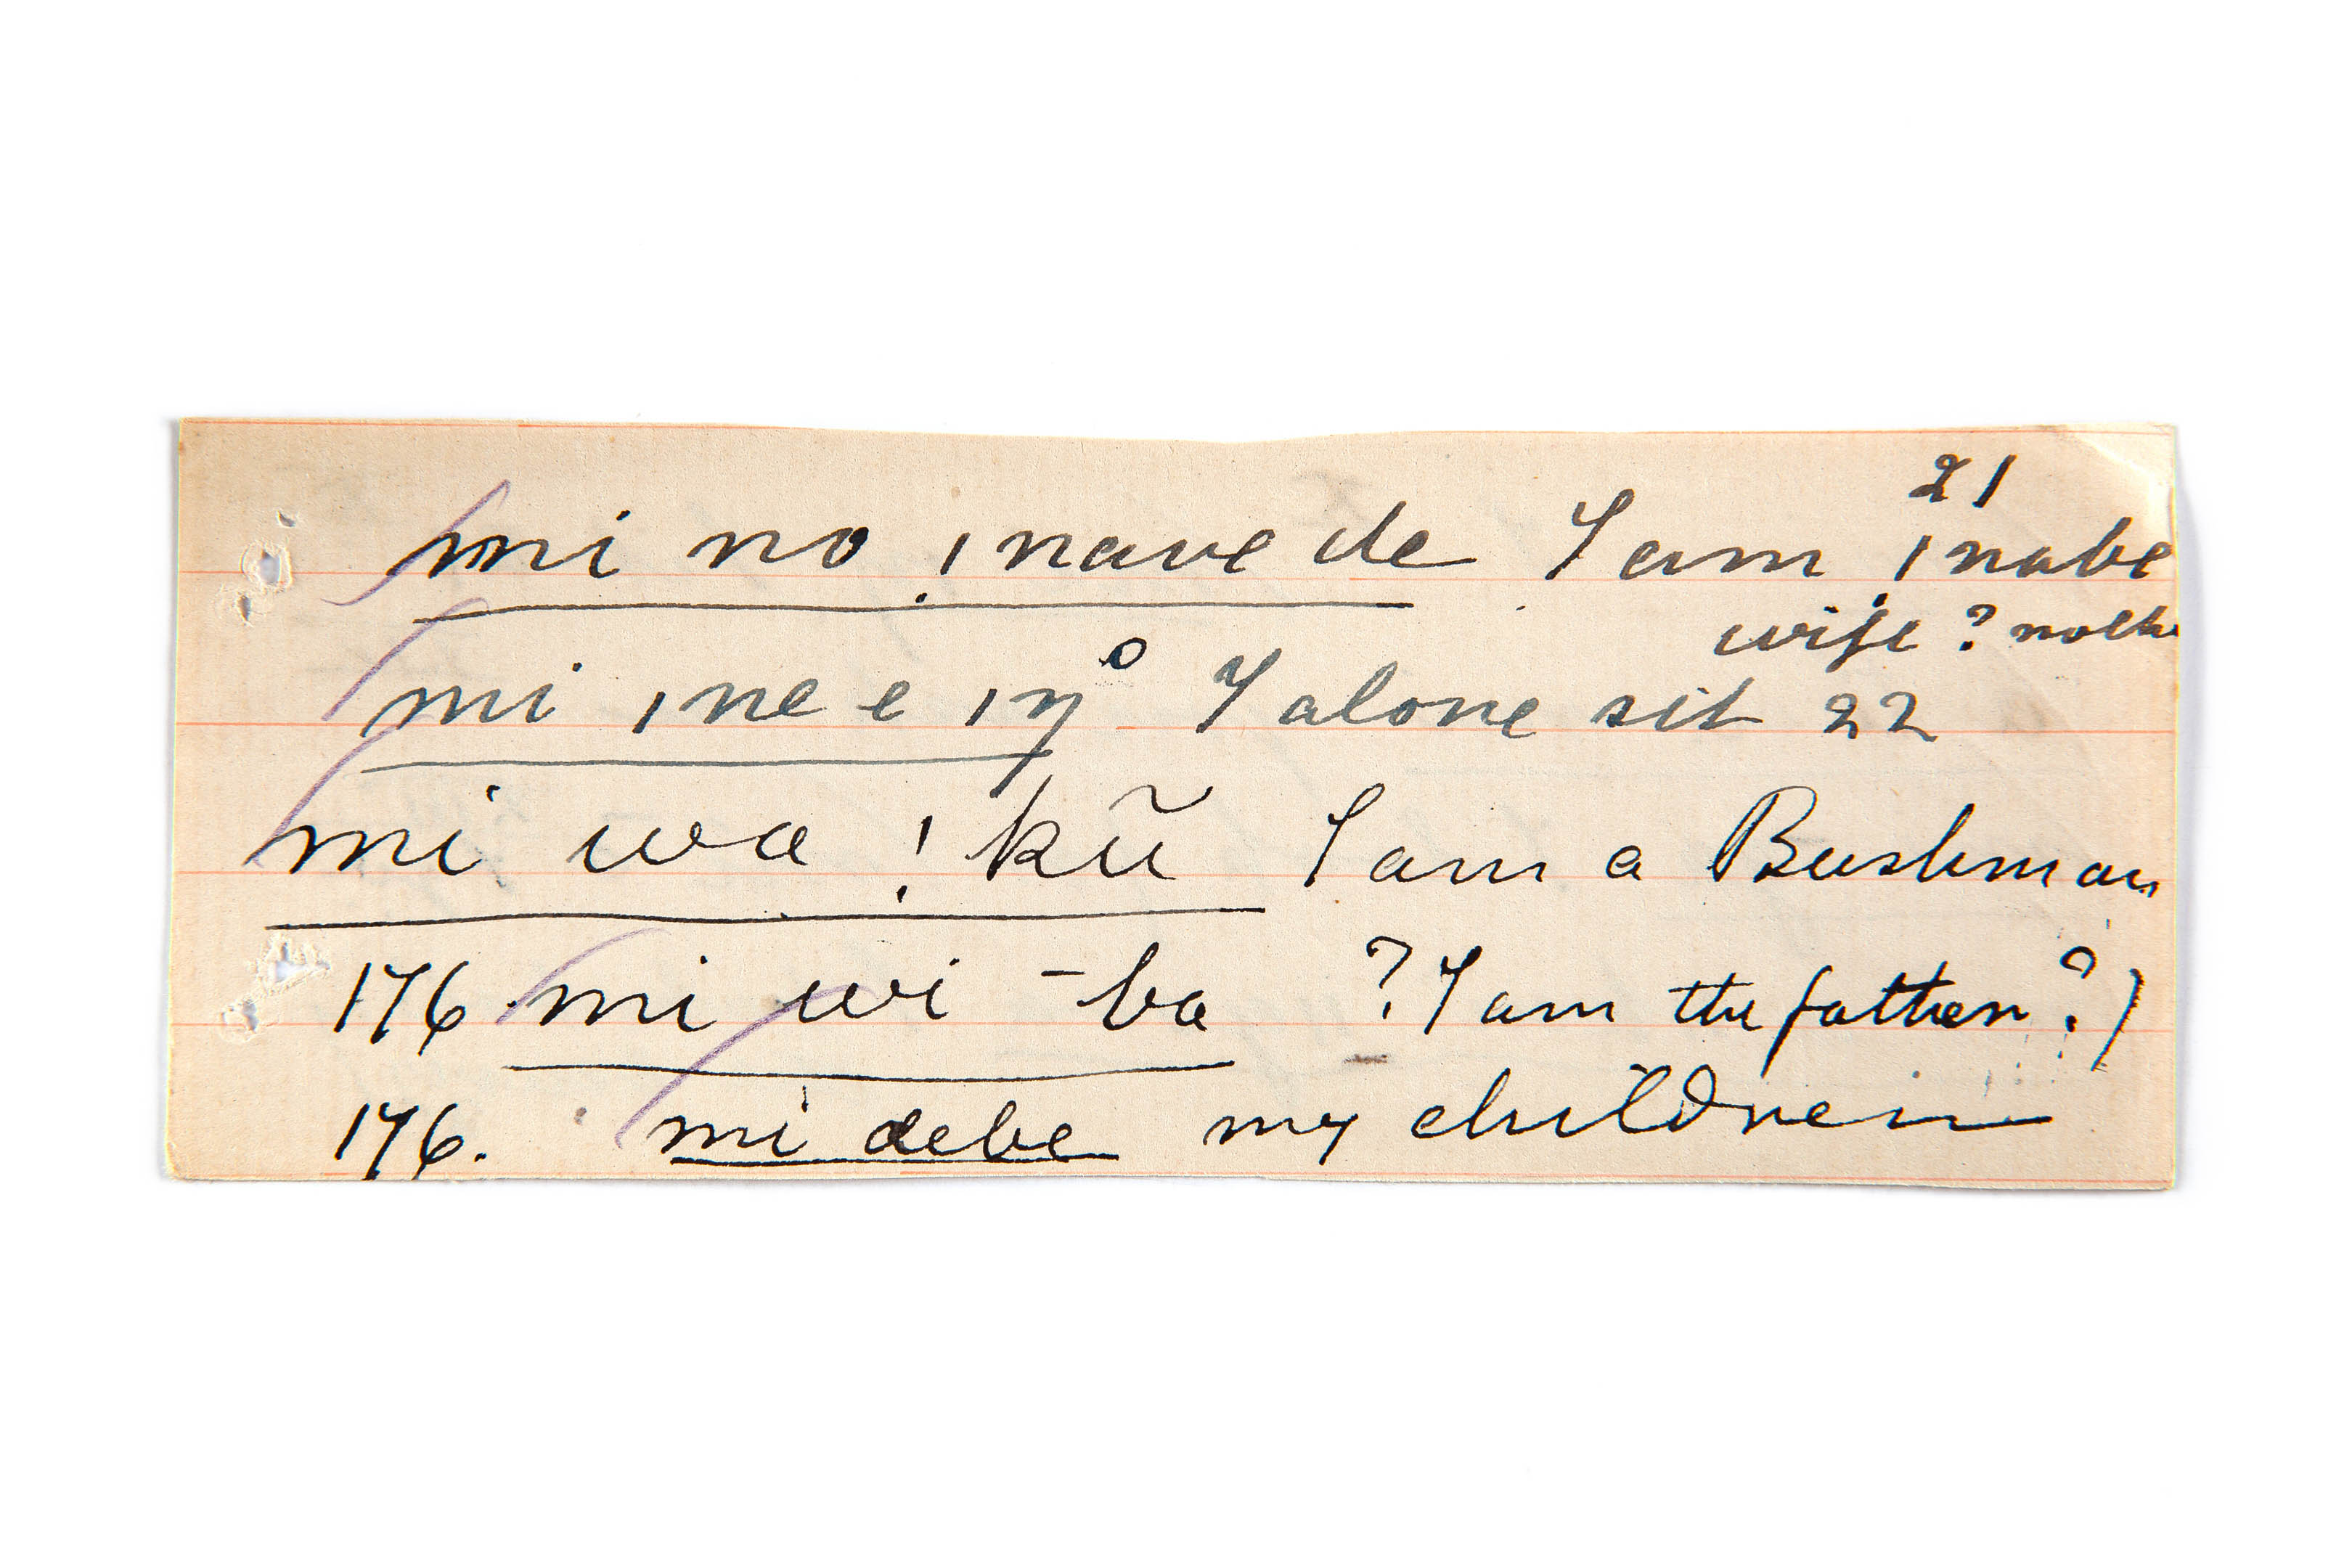 21
mi no ǃnave de I am ǃnabe
wife ?
mi ǀne e ǀŋ° I alone sit 22
mi wa ǃkũ I am a Bushman
176 mi wi -ba ? I am the father ?)
176. mi debe my children